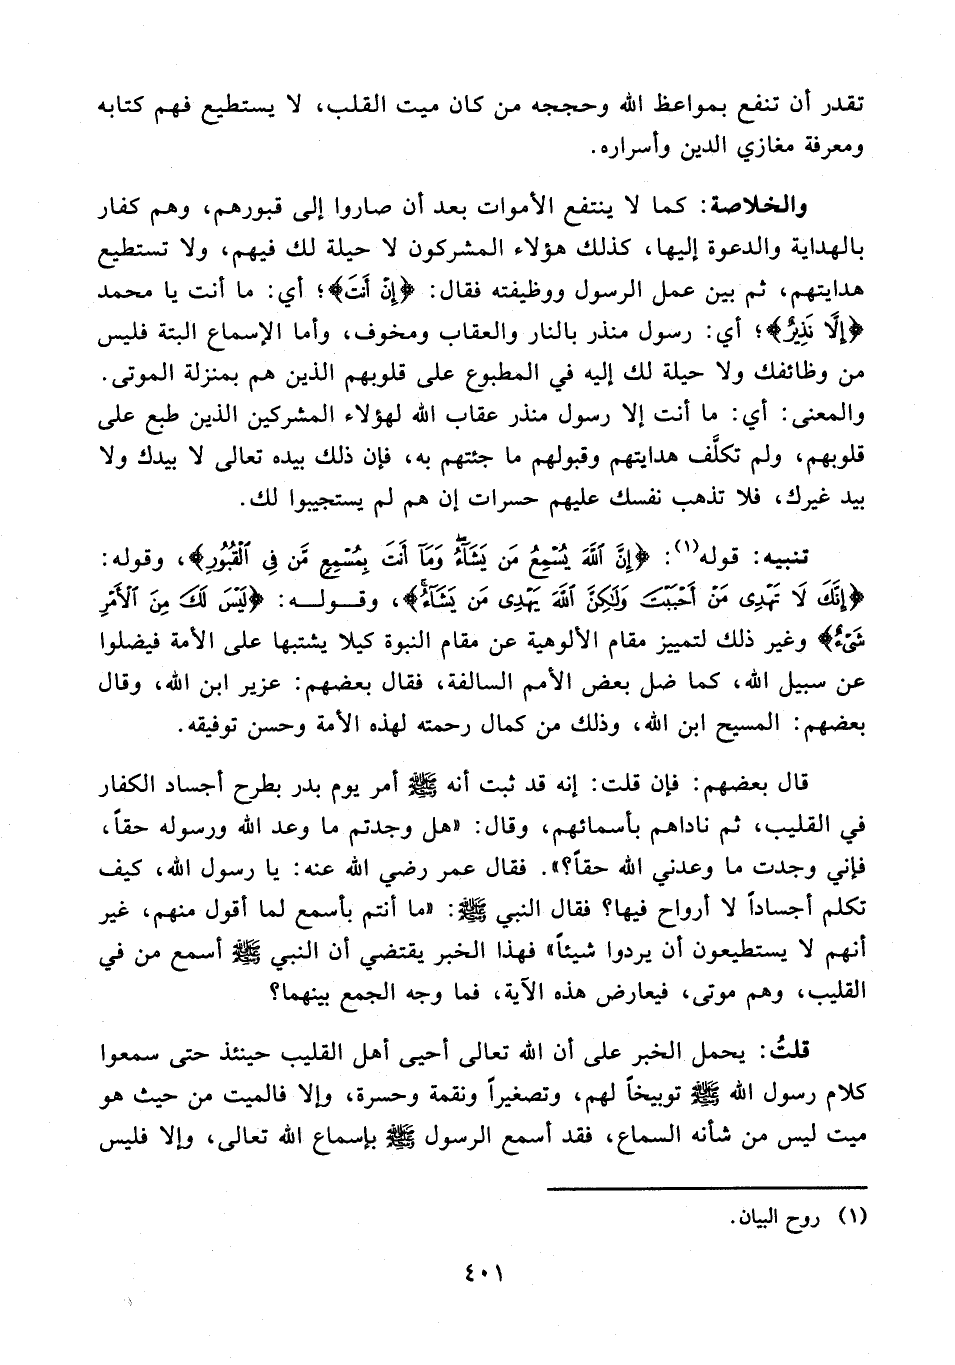 تقدر أن تنفع بمواعظ الله وحججه من كان ميت القلب، لا يستطيع فهم كتابه
ومعرفة مغازي الدين وأسراره.
والخلاصة: كما لا ينتفع الأموات بعد أن صاروا إلى قبورهم، وهم كفار
بالهداية والدعوة إليها، كذلك هؤلاء المشركون لا حيلة لك فيهم، ولا تستطيع
هدايتهم، ثم بين عمل الرسول ووظيفته فقال: ﴿إِنْ أَنتَ﴾؛ أي: ما أنت يا محمد
﴿إِلَّا نَذِيرٌ﴾؛ أي: رسول منذر بالنار والعقاب ومخوف، وأما الإسماع البتة فليس
من وظائفك ولا حيلة لك إليه في المطبوع على قلوبهم الذين هم بمنزلة الموتى.
والمعنى: أي: ما أنت إلا رسول منذر عقاب الله لهؤلاء المشركين الذين طبع على
قلوبهم، ولم تكلَّف هدايتهم وقبولهم ما جئتهم به، فإن ذلك بيده تعالى لا بيدك ولا
بيد غيرك، فلا تذهب نفسك عليهم حسرات إن هم لم يستجيبوا لك.
تنبيه: قوله(١): ﴿إِنَّ ٱللَّهَ يُسْمِعُ مَن يَشَآءُ ۖ وَمَآ أَنتَ بِمُسْمِعٍ مَّن فِى ٱلْقُبُورِ﴾، وقوله:
﴿إِنَّكَ لَا تَهْدِى مَنْ أَحْبَبْتَ وَلَٰكِنَّ ٱللَّهَ يَهْدِى مَن يَشَآءُ ۚ﴾، وقوله: ﴿لَيْسَ لَكَ مِنَ ٱلْأَمْرِ
شَىْءٌ﴾ وغير ذلك لتمييز مقام الألوهية عن مقام النبوة كيلا يشتبها على الأمة فيضلوا
عن سبيل الله، كما ضل بعض الأمم السالفة، فقال بعضهم: عزير ابن الله، وقال
بعضهم: المسيح ابن الله، وذلك من كمال رحمته لهذه الأمة وحسن توفيقه.
قال بعضهم: فإن قلت: إنه قد ثبت أنه ﷺ أمر يوم بدر بطرح أجساد الكفار
في القليب، ثم ناداهم بأسمائهم، وقال: «هل وجدتم ما وعد الله ورسوله حقاً،
فإني وجدت ما وعدني الله حقاً؟». فقال عمر رضي الله عنه: يا رسول الله، كيف
تكلم أجساداً لا أرواح فيها؟ فقال النبي ﷺ: «ما أنتم بأسمع لما أقول منهم، غير
أنهم لا يستطيعون أن يردوا شيئاً» فهذا الخبر يقتضي أن النبي ﷺ أسمع من في
القليب، وهم موتى، فيعارض هذه الآية، فما وجه الجمع بينهما؟
قلتُ: يحمل الخبر على أن الله تعالى أحيى أهل القليب حينئذ حتى سمعوا
كلام رسول الله ﷺ توبيخاً لهم، وتصغيراً ونقمة وحسرة، وإلا فالميت من حيث هو
ميت ليس من شأنه السماع، فقد أسمع الرسول ﷺ بإسماع الله تعالى، وإلا فليس
(١) روح البيان.
٤٠١